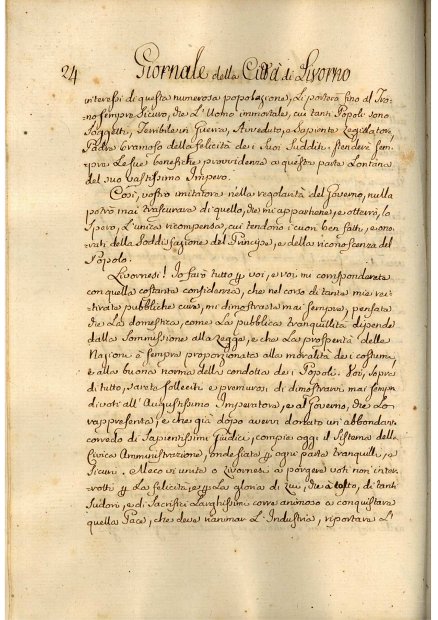 24 Giornale della Città di Livorno
interessi di questa numerosa popolazione, Li porterà fino al Tro-
no sempre Sicuro, che L'Uomo immortale, cui tanti Popoli sono
Soggetti, Terribile in Guerra, Avveduto, e Sapiente Legislatore,
Padre bramoso della felicità dei Suoi Sudditi stenderà sem-
pre Le sue benefiche provvidenze a questa parte Lontana
del suo vastissimo Impero.
Così, vostro imitatore nella regolarità del Governo, nulla
potrò mai trascurare di quello, che mi appartiene, e otterrò, lo
Spero, L'unica ricompensa, cui tendono i cuori ben fatti, e ono-
rati della Soddisfazione del Principe, e della riconoscenza del
Popolo.
Livornesi! Io farò tutto p voi, e voi mi corrisponderete
con quella costante confidenza, che nel corso di tante mie rei-
terate pubbliche cure, mi dimostraste mai sempre, pensate
che La domestica, come La pubblica tranquillità dipende
dalla Sommissione alla Legge, e che La prosperità delle
Nazioni è sempre proporzionata alla moralità dei costumi,
e alla buona norma della condotta dei Popoli. Voi, sopra
di tutto, Sarete solleciti e premurosi di dimostrarvi mai sempre
divoti all'Augustissimo Imperatore, e al Governo, che Lo
rappresenta, e che già dopo avervi donato un'abbondante
corredo di Sapientissimi Giudici, compie oggi il Sistema della
Civica Amministrazione, onde siate p ogni parte tranquilli, e
Sicuri. Meco vi unite o Livornesi a porgere voti non inter-
rotti p La felicità, e p La gloria di Lui, che a costo, di tanti
Sudori, e di Sacrifizi Larghissimi corre animoso a conquistare
quella Pace, che deve rianimar L'Industria, riportare L'